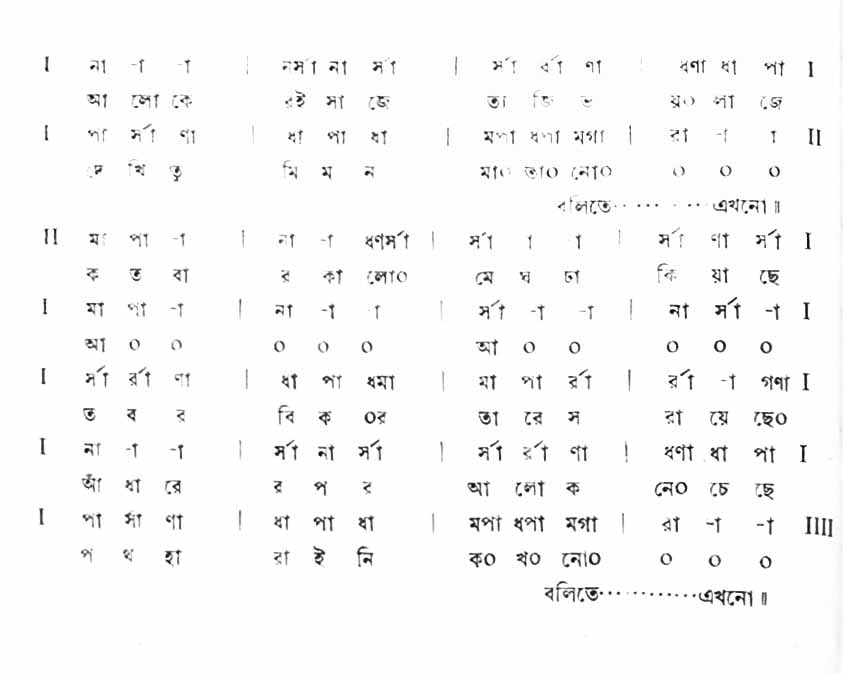 I না -া -া | নর্সা না র্সা | র্সা র্রা ণা | ধণা ধা পা I
আ লো কে রই সা জে তা জি ভ য়০ লা জে
I পা র্সা ণা | ধা পা ধা | মপা ধপা মগা | রা -া া II
দে খি তু মি ম ন মা০ তা০ নো০ ০ ০ ০
বলিতে············এখনো॥
II মা পা -া | না -া ধণর্সা | র্সা া া | র্সা ণা র্সা I
ক ত বা র কা লো০ মে ঘ ঢা কি য়া ছে
I মা পা -া | না -া া | র্সা -া -া | না র্সা -া I
আ ০ ০ ০ ০ ০ আ ০ ০ ০ ০ ০
I র্সা র্রা ণা | ধা পা ধমা | মা পা র্রা | র্রা -া গণা I
ত ব র বি ক ০র তা রে স রা য়ে ছে০
I না -া -া | র্সা না র্সা | র্সা র্রা ণা | ধণা ধা পা I
আঁ ধা রে র প র আ লো ক নে০ চে ছে
I পা র্সা ণা | ধা পা ধা | মপা ধপা মগা | রা -া -া IIII
প থ হা রা ই নি ক০ খ০ নো০ ০ ০ ০
বলিতে············এখনো॥